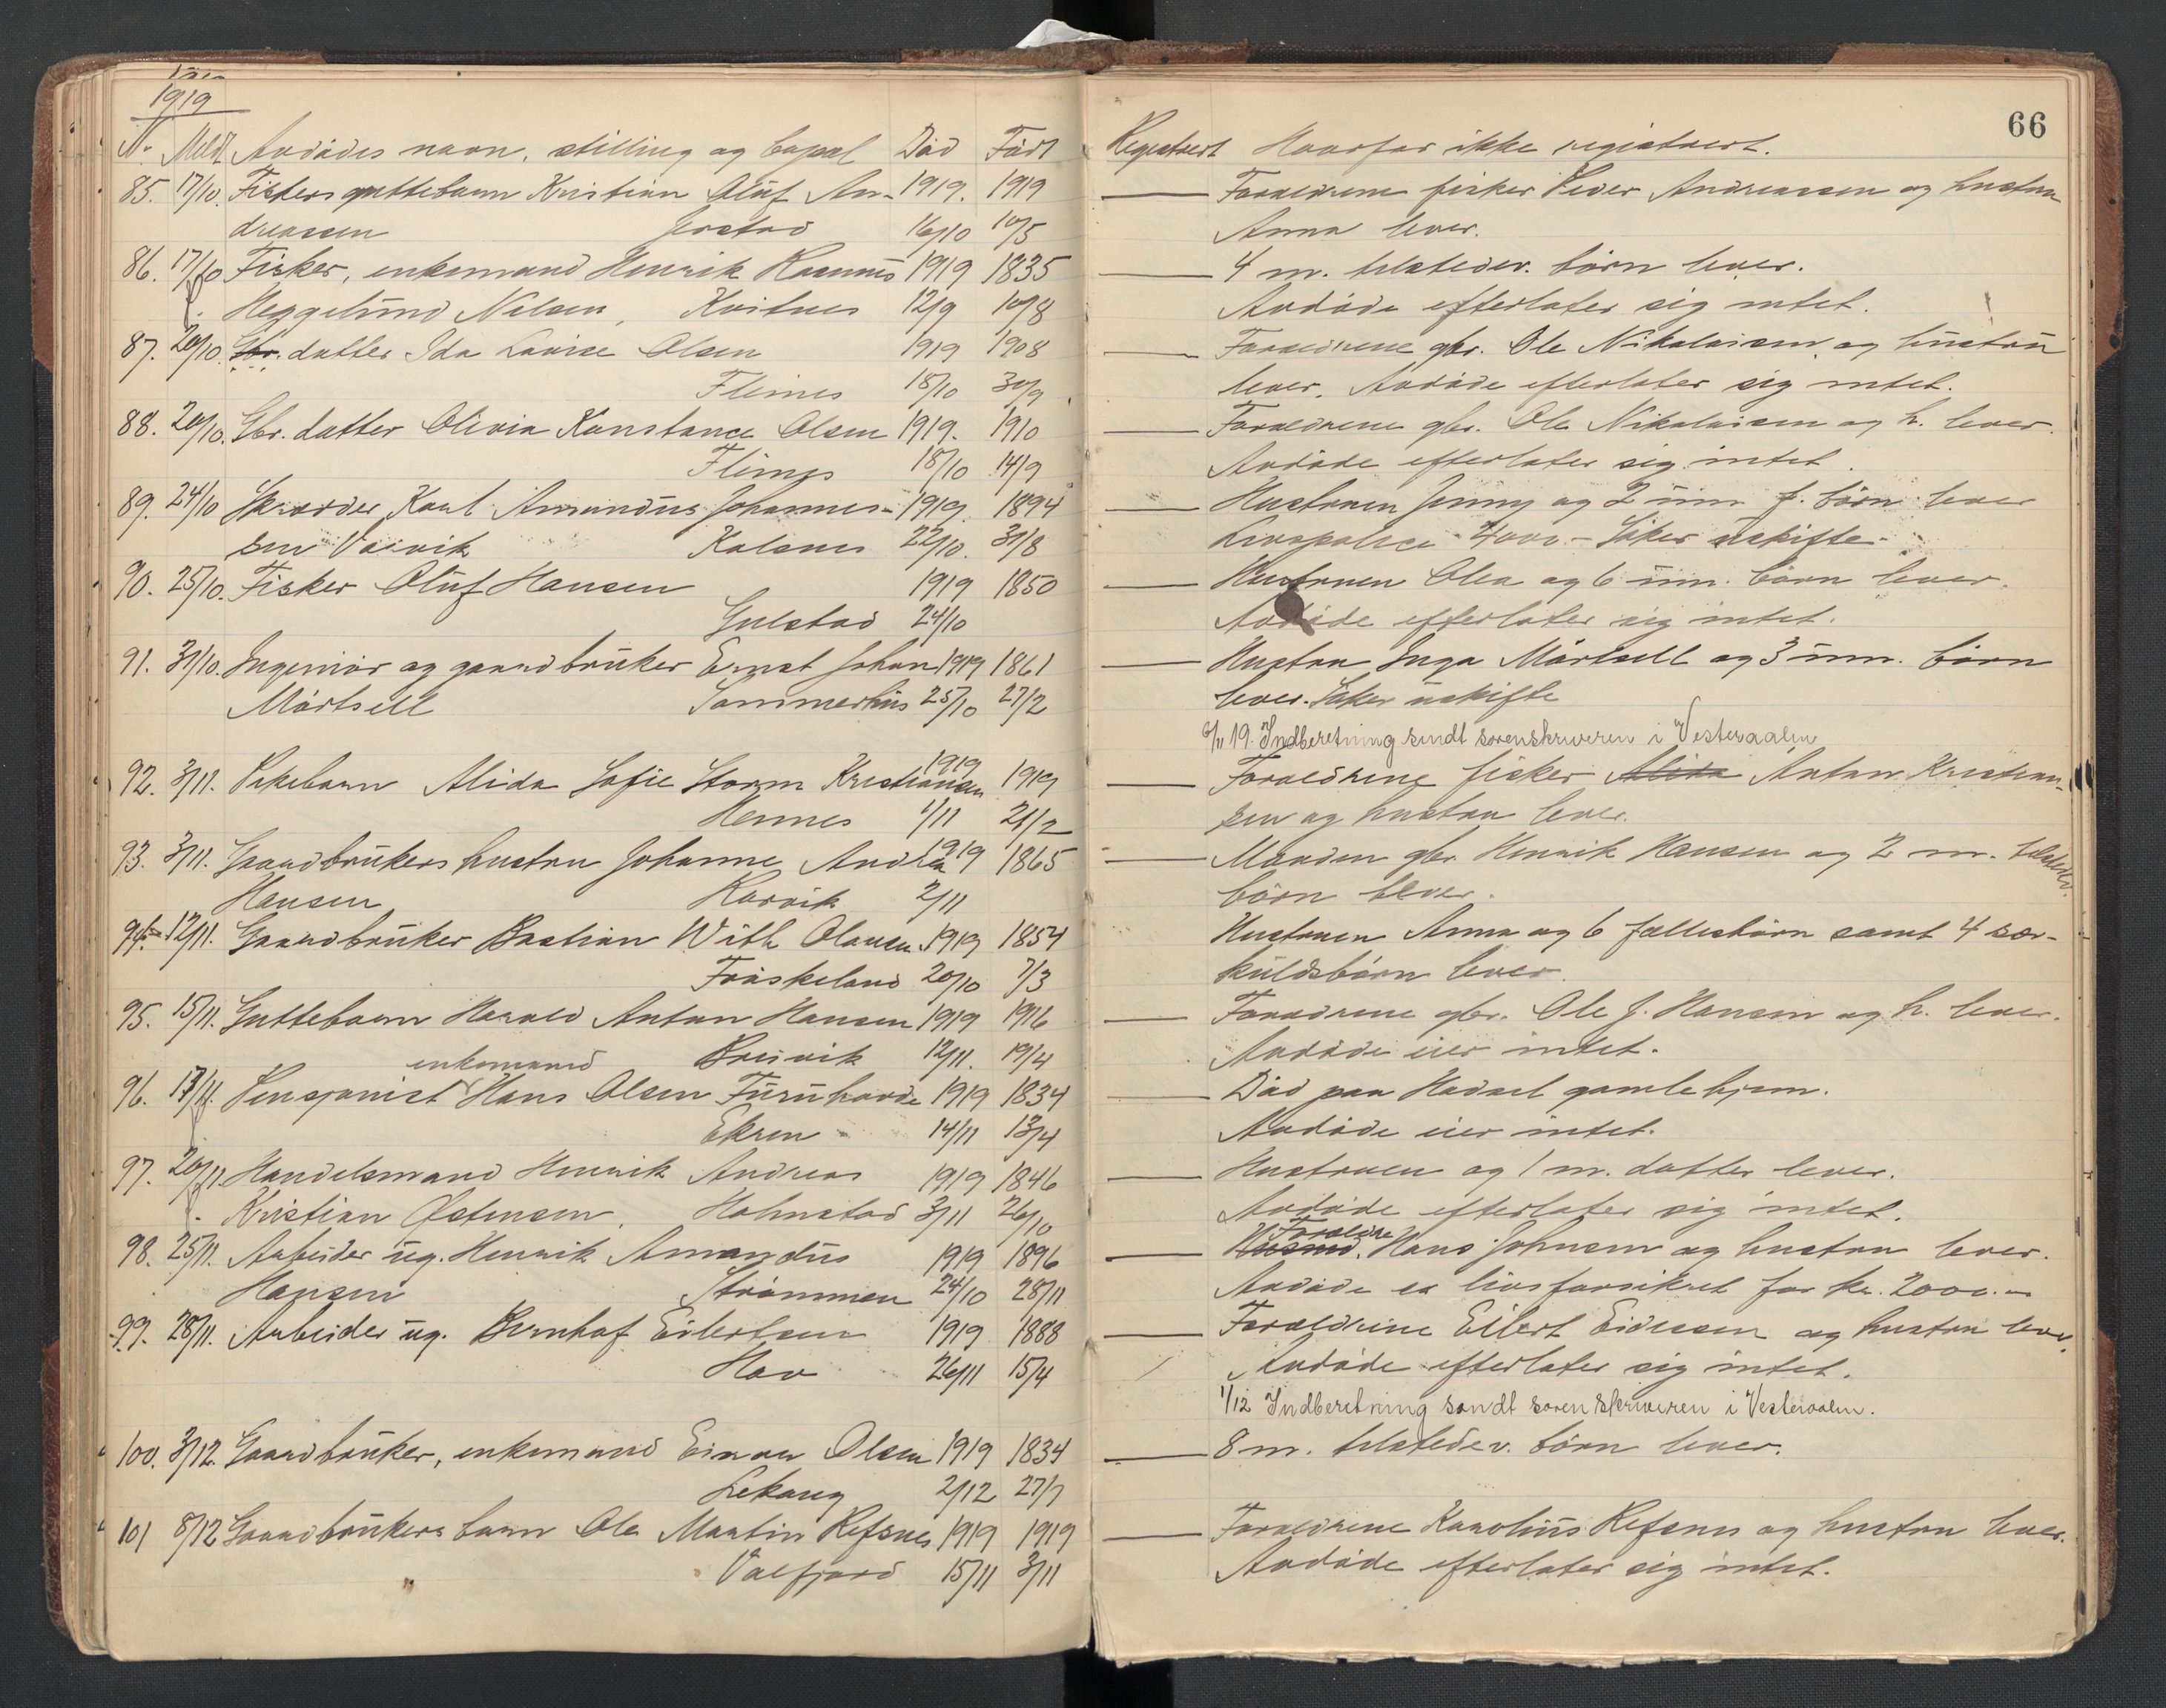 1919
No Meldt Avdødes navn, stilling og bopæl Død Født
85. 17/10. Fiskers guttebarn Kristian Oluf An- 1919. 1919
dreassen Jorstad 16/10 10/5
86. 17/10 Fisker, enkemand Henrik Rasmus 1919 1835
Heggelund Nilsen, Kvitnes 12/9 10/8
87. 20/10. Gbr. datter Ida Lovise Olsen 1919 1908
Fleines 18/10 30/9
88. 20/10. Gbr. datter Olivia Konstance Olsen 1919. 1910
Fleines 18/10 14/9
89. 24/10 Skrædder Karl Amandus Johannes- 1919. 1894
sen Kalsnes 22/10. 31/8
90. 25/10. Fisker Oluf Hansen 1919 1850
Gulstad 24/10
91. 31/10. Ingeniør og gaardbruker Ernst Johan 1919 1861
Mårtsell Sommerhus 25/10 27/2
92. 3/11. Pikebarn Alida Sofie Storm Kristiansen 1919 1919
Hennes 1/11 21/2
93. 3/11. Gaardbrukers hustru Johanne Andrea 1919 1865
Hansen Korvik 2/11
94. 12/11. Gaardbruker Bastian With Olausen 1919 1854
Frøskeland 20/10 7/3
95. 15/11. Guttebarn Harald Anton Hansen 1919 1916
Breivik 12/11. 19/4
enkemand
96. 17/11. Pensjonist Hans Olsen Furuhovde 1919 1834
Ekren 14/11 13/4
97. 20/11. Handelsmand Henrik Andreas 1919 1846
Kristian Østensen, Holmstad 3/11 26/10
98. 25/11. Arbeider ug. Henrik Amandus 1919 1896
Hansen Strømmen 24/10 28/11
99. 28/11. Arbeider ug. Bernhof Eilertsen 1919 1888
Hov 26/11 15/4
100. 3/12. Gaardbruker, enkemand Einar Olsen 1919 1834
Lekang 2/12 27/7
101 8/12 Gaardbrukers barn Ole Martin Refsnes 1919 1919
Valfjord 15/11 3/11
66
Registrert Hvorfor ikke registrert.
Forældrene fisker Peder Andreassen og hustru
Anna lever.
4 m. tilstedev. børn lever.
Avdøde efterlater sig intet.
Forældrene gbr. Ole Nikolaisen og hustru
lever. Avdøde efterlater sig intet.
Forældrene gbr. Ole Nikolaisen og h. lever.
Avdøde efterlater sig intet.
Hustruen Jenny og 2 um. f. børn lever
Livspolice 4000.- Søker uskifte.
Hustruen Olea og 6 um. børn lever.
Avdøde efterlater sig intet.
Hustru Inga Mårtsell og 3 um. børn
lever. Søker uskifte
6/11 19. Indberetning sendt sorenskriveren i Vesteraalen
Forældrene fisker Alida Anton Kristian-
sen og hustru lever.
Manden gbr. Henrik Hansen og 2 m. tilstedev.
børn lever.
Hustruen Anna og 6 fællesbørn samt 4 sær-
kuldsbørn lever.
Forældrene gbr. Ole J. Hansen og h. lever.
Avdøde eier intet.
Død paa Hadsel gamlehjem.
Avdøde eier intet.
Hustruen og 1 m. datter lever.
Avdøde efterlater sig intet.
Forældre
Husmd. Hans Johnsen og hustru lever.
Avdøde er livsforsikret for kr. 2000.-
Forældrene Eilert Eidessen og hustru lever.
Avdøde efterlater sig intet.
1/12 Indberetning sendt sorenskriveren i Vesteraalen.
8 m. tilstedev. børn lever.
Forældrene Karolius Refsnes og hustru lever.
Avdøde efterlater sig intet.